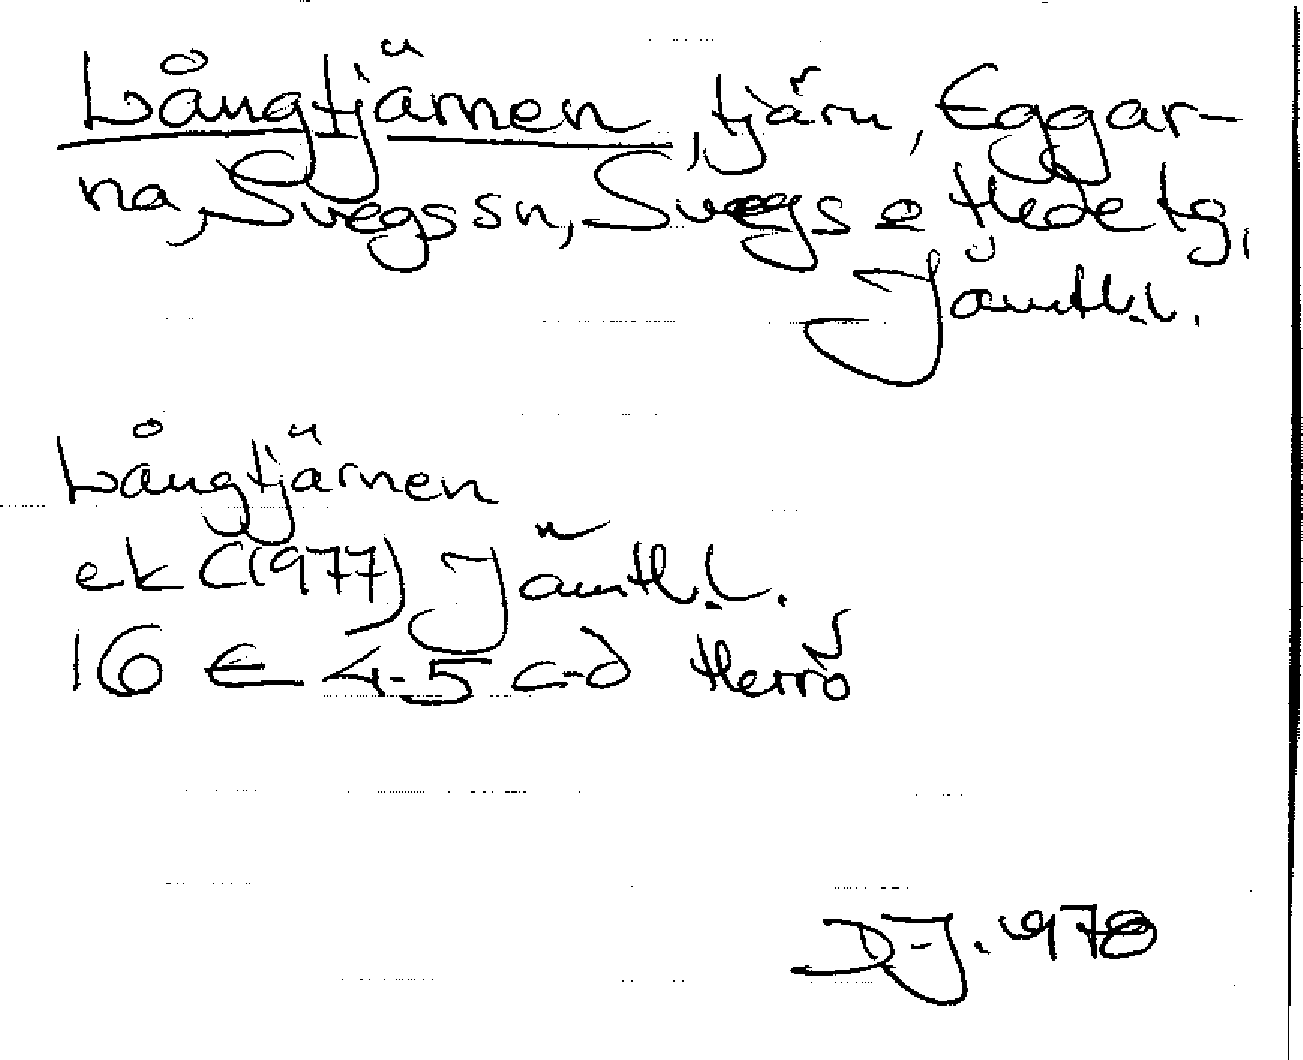 Långtjärnen, tjärn, Eggar-
na, Svegs sn, Svegs o Hede tg,
Jämtl.l.
Långtjärnen
ek (1977) Jämtl.l.
16 E 4-5 c-d Herrö
D-J. 1978